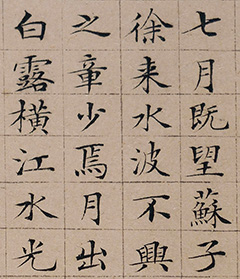 七月既望蘇子
徐来水波不興
之章少焉月出
白露橫江水光